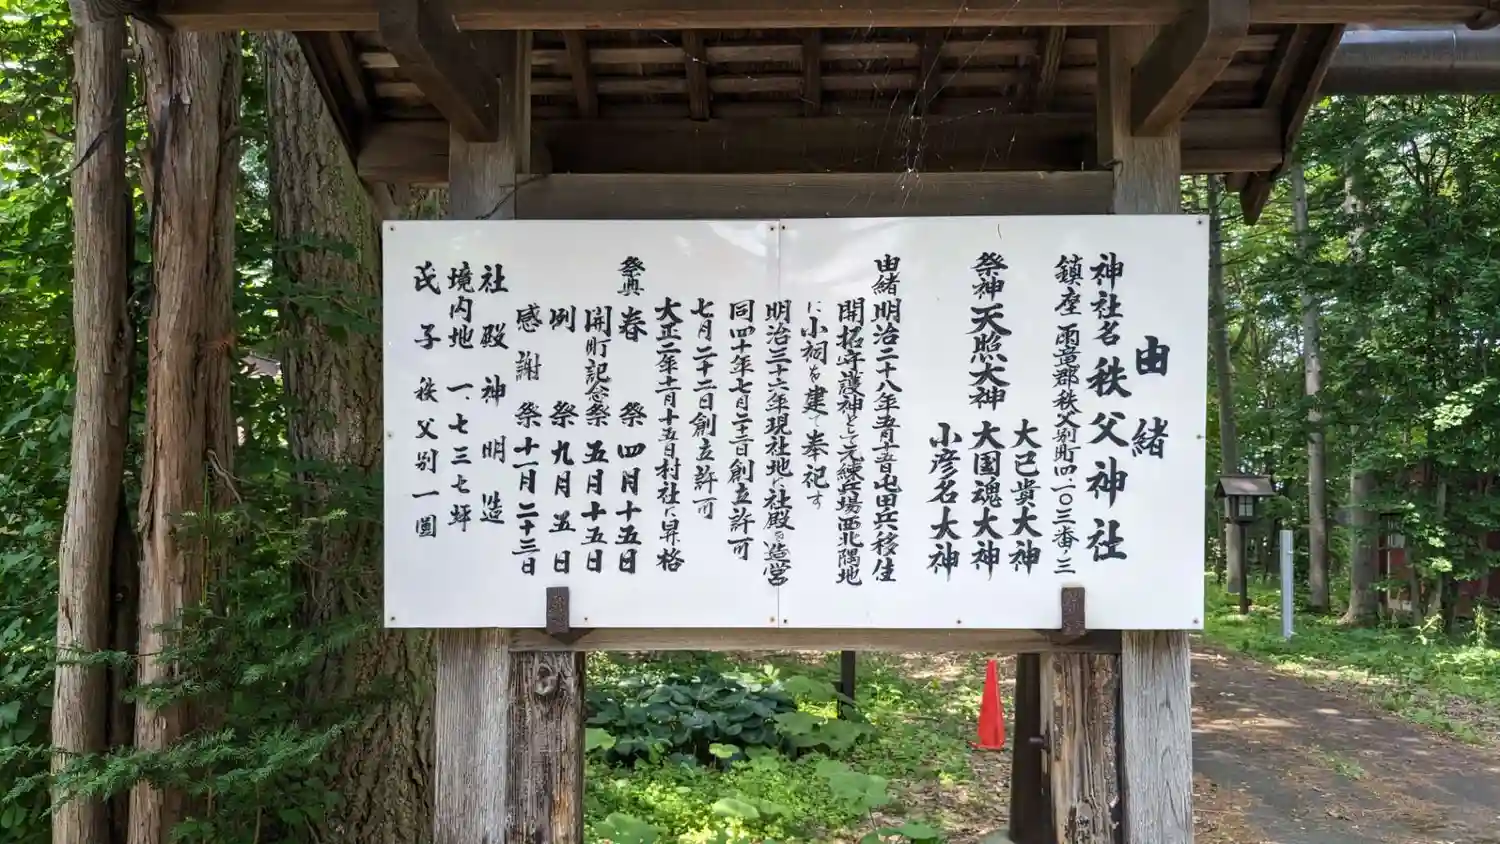 由緒
神社名 秩父神社
鎮座 雨竜郡秩父別町四一〇三番ノ三
祭神 天照大神 大己貴大神
大国魂大神
小彦名大神
由緒 明治二十八年五月十五日屯田兵移住
開拓守護神として元練兵場西北隅地
に小祠を建て奉祀す
明治三十六年現社地に社殿を造営
同四十年七月二十二日創立許可
七月二十二日創立許可
大正二年十二月十五日村社に昇格
祭典 春祭 四月十五日
開町記念祭 五月十五日
例祭 九月五日
感謝祭 十一月二十三日
社殿 神明造
境内地 一、七三七坪
氏子 秩父別一圓